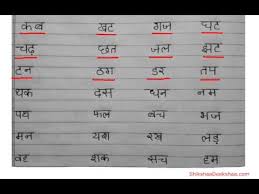 कब खट गज घट
चढ़ छत जल झट
टन ठग डर तप
थक दस धन नम
पय फल बच भज
मन यश रख लड़
वह शक सच हम
ShikshaaDeekshaa.com